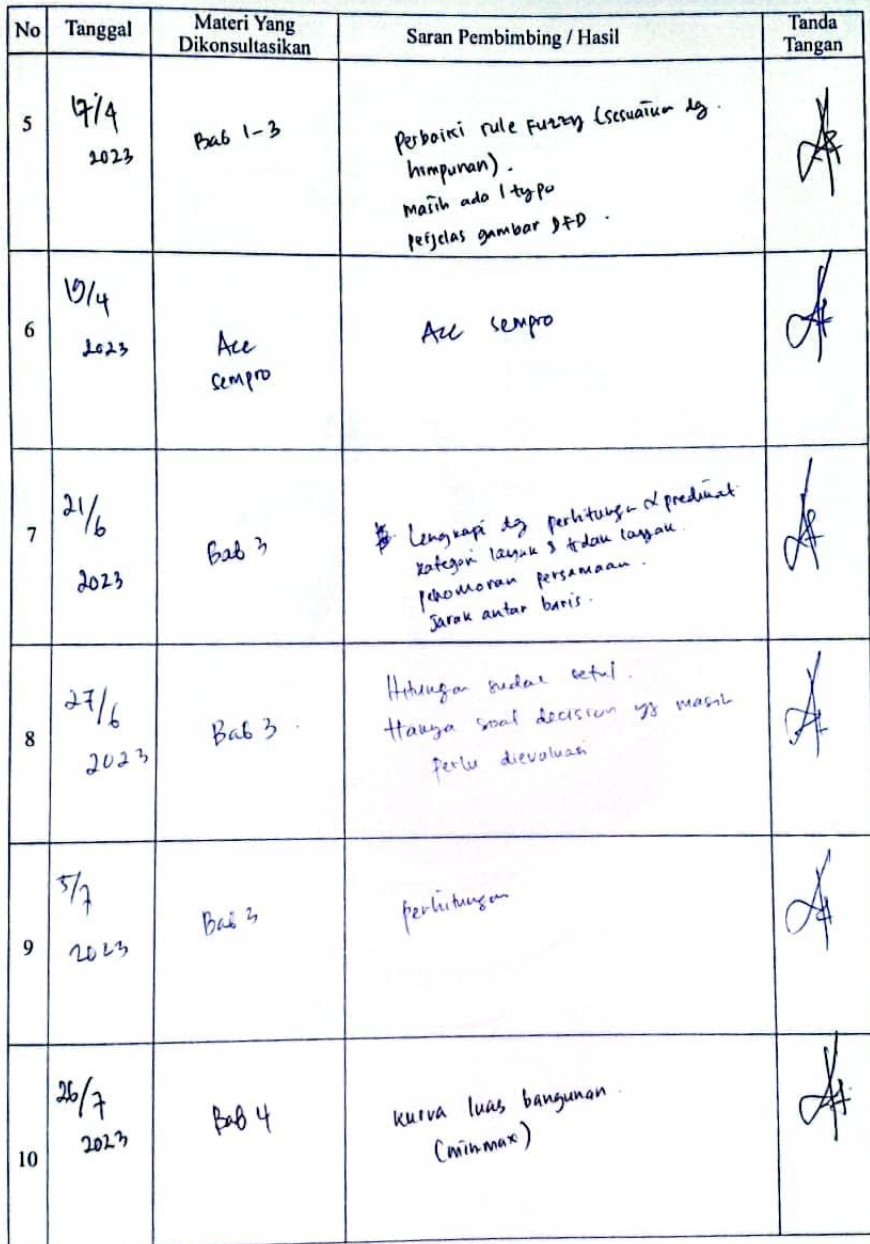 No
Tanggal
Materi Yang
Dikonsultasikan
Saran Pembimbing / Hasil
Tanda
Tangan
5
17/4
2023
Bab 1-3
Perbaiki rule Fuzzy (sesuaikan dg.
himpunan).
Masih ada 1 typo
perjelas gambar DFD.
6
19/4
2023
Acc
sempro
Acc sempro
7
21/6
2023
Bab 3
Lengkapi dg perhitungan α predikat
kategori layak & tidak layak.
penomoran persamaan.
Jarak antar baris.
8
27/6
2023
Bab 3.
Hitungan sudah betul.
Hanya soal decision yg masih
perlu dievaluasi
9
5/7
2023
Bab 3
perhitungan
10
26/7
2023
Bab 4
kurva luas bangunan.
(minmax)